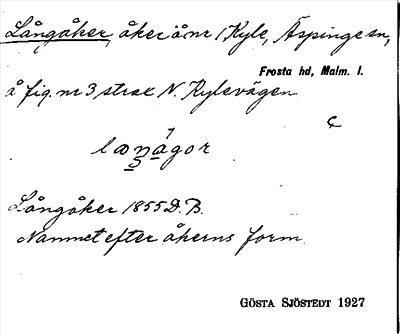 Långåker, åker å nr 1 Kyle, Äspinge sn,
Frosta hd, Malm. l.
å fig. nr 3 strax N. Kylevägen
Långåker 1855 D. B.
Namnet efter åkerns form.
GÖSTA SJÖSTEDT 1927